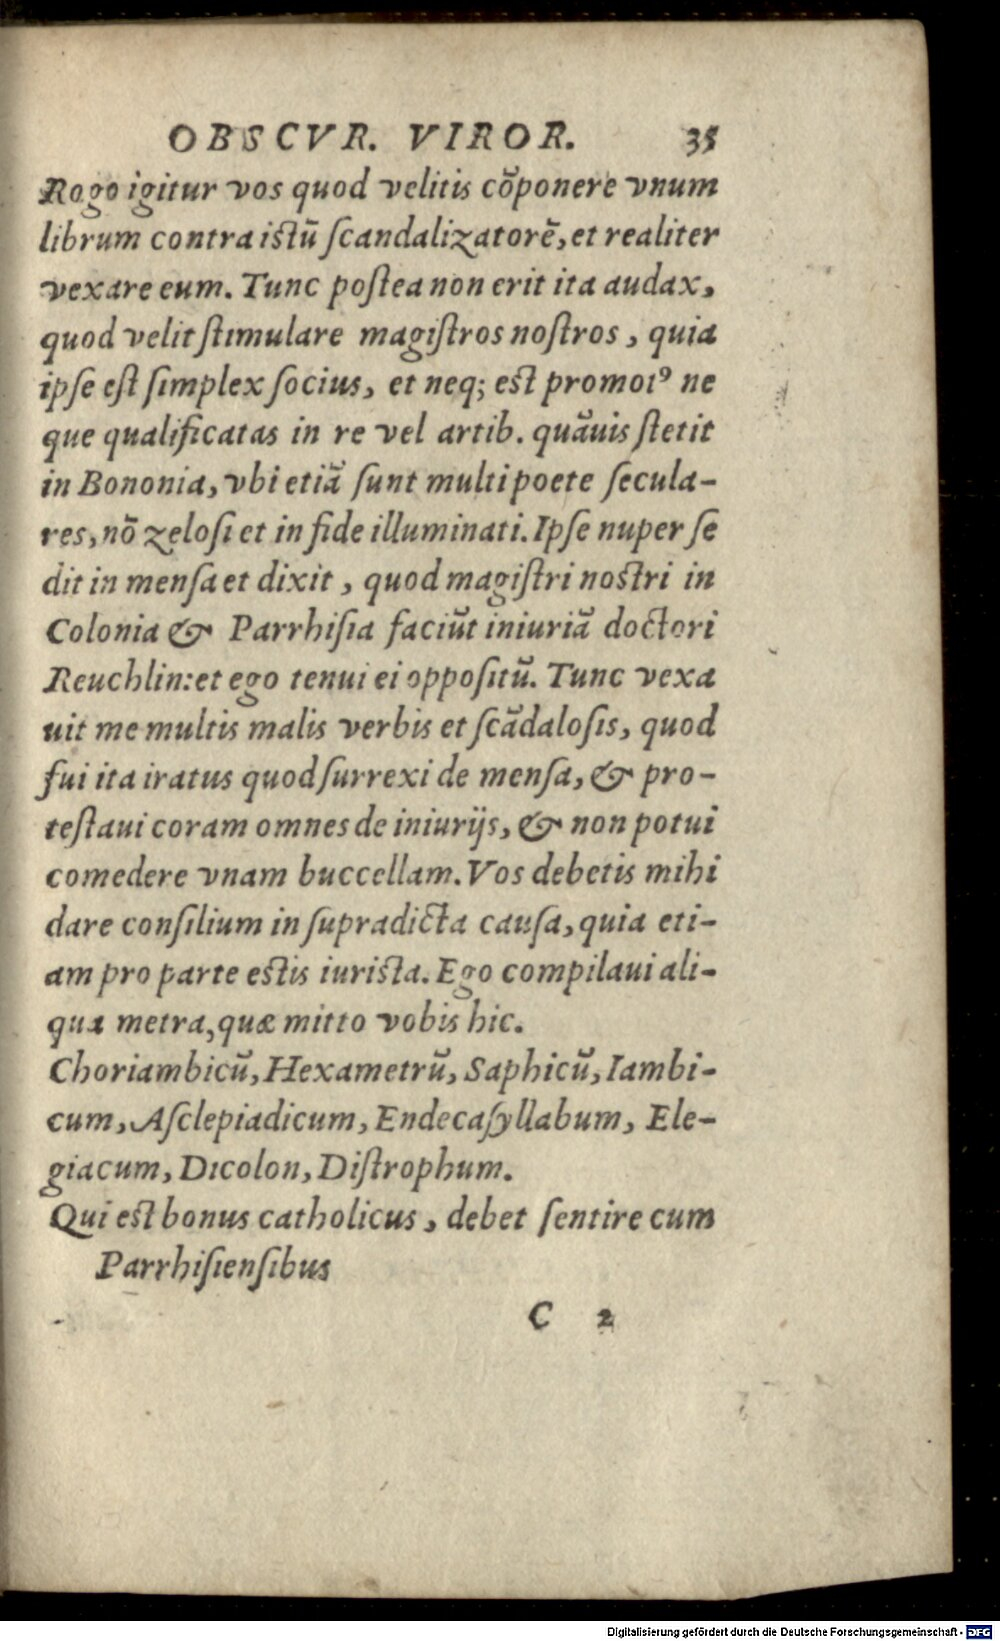 OBSCVR. VIROR. 35
Rogo igitur vos quod velitis cōponere vnum
librum contra istū ſcandalizatorē, et realiter
vexare eum. Tunc poſtea non erit ita audax,
quod velit ſtimulare magiſtros noſtros, quia
ipſe eſt ſimplex ſocius, et neq; est promoı⁹ ne
que qualificatas in re vel artib. quāuis ſtetit
in Bononia, vbi etiā ſunt multi poete ſecula-
res, nō zeloſi et in fide illuminati. Ipſe nuper ſe
dit in menſa et dixit, quod magiſtri nostri in
Colonia & Parrhiſia faciūt iniuriā doctori
Reuchlin: et ego tenui ei oppoſitū. Tunc vexa
uit me multis malis verbis et ſcādaloſis, quod
fui ita iratus quod ſurrexi de menſa, & pro-
teſtaui coram omnes de iniurijs, & non potui
comedere vnam buccellam. Vos debetis mihi
dare conſilium in ſupradicta cauſa, quia eti-
am pro parte estis iurista. Ego compilaui ali-
qua metra, quæ mitto vobis hic.
Choriambicū, Hexametrū, Saphicū, Iambi-
cum, Aſclepiadicum, Endecaſyllabum, Ele-
giacum, Dicolon, Diſtrophum.
Qui est bonus catholicus, debet ſentire cum
Parrhiſienſibus
C 2
Digitalisierung gefördert durch die Deutsche Forschungsgemeinschaft - DFG